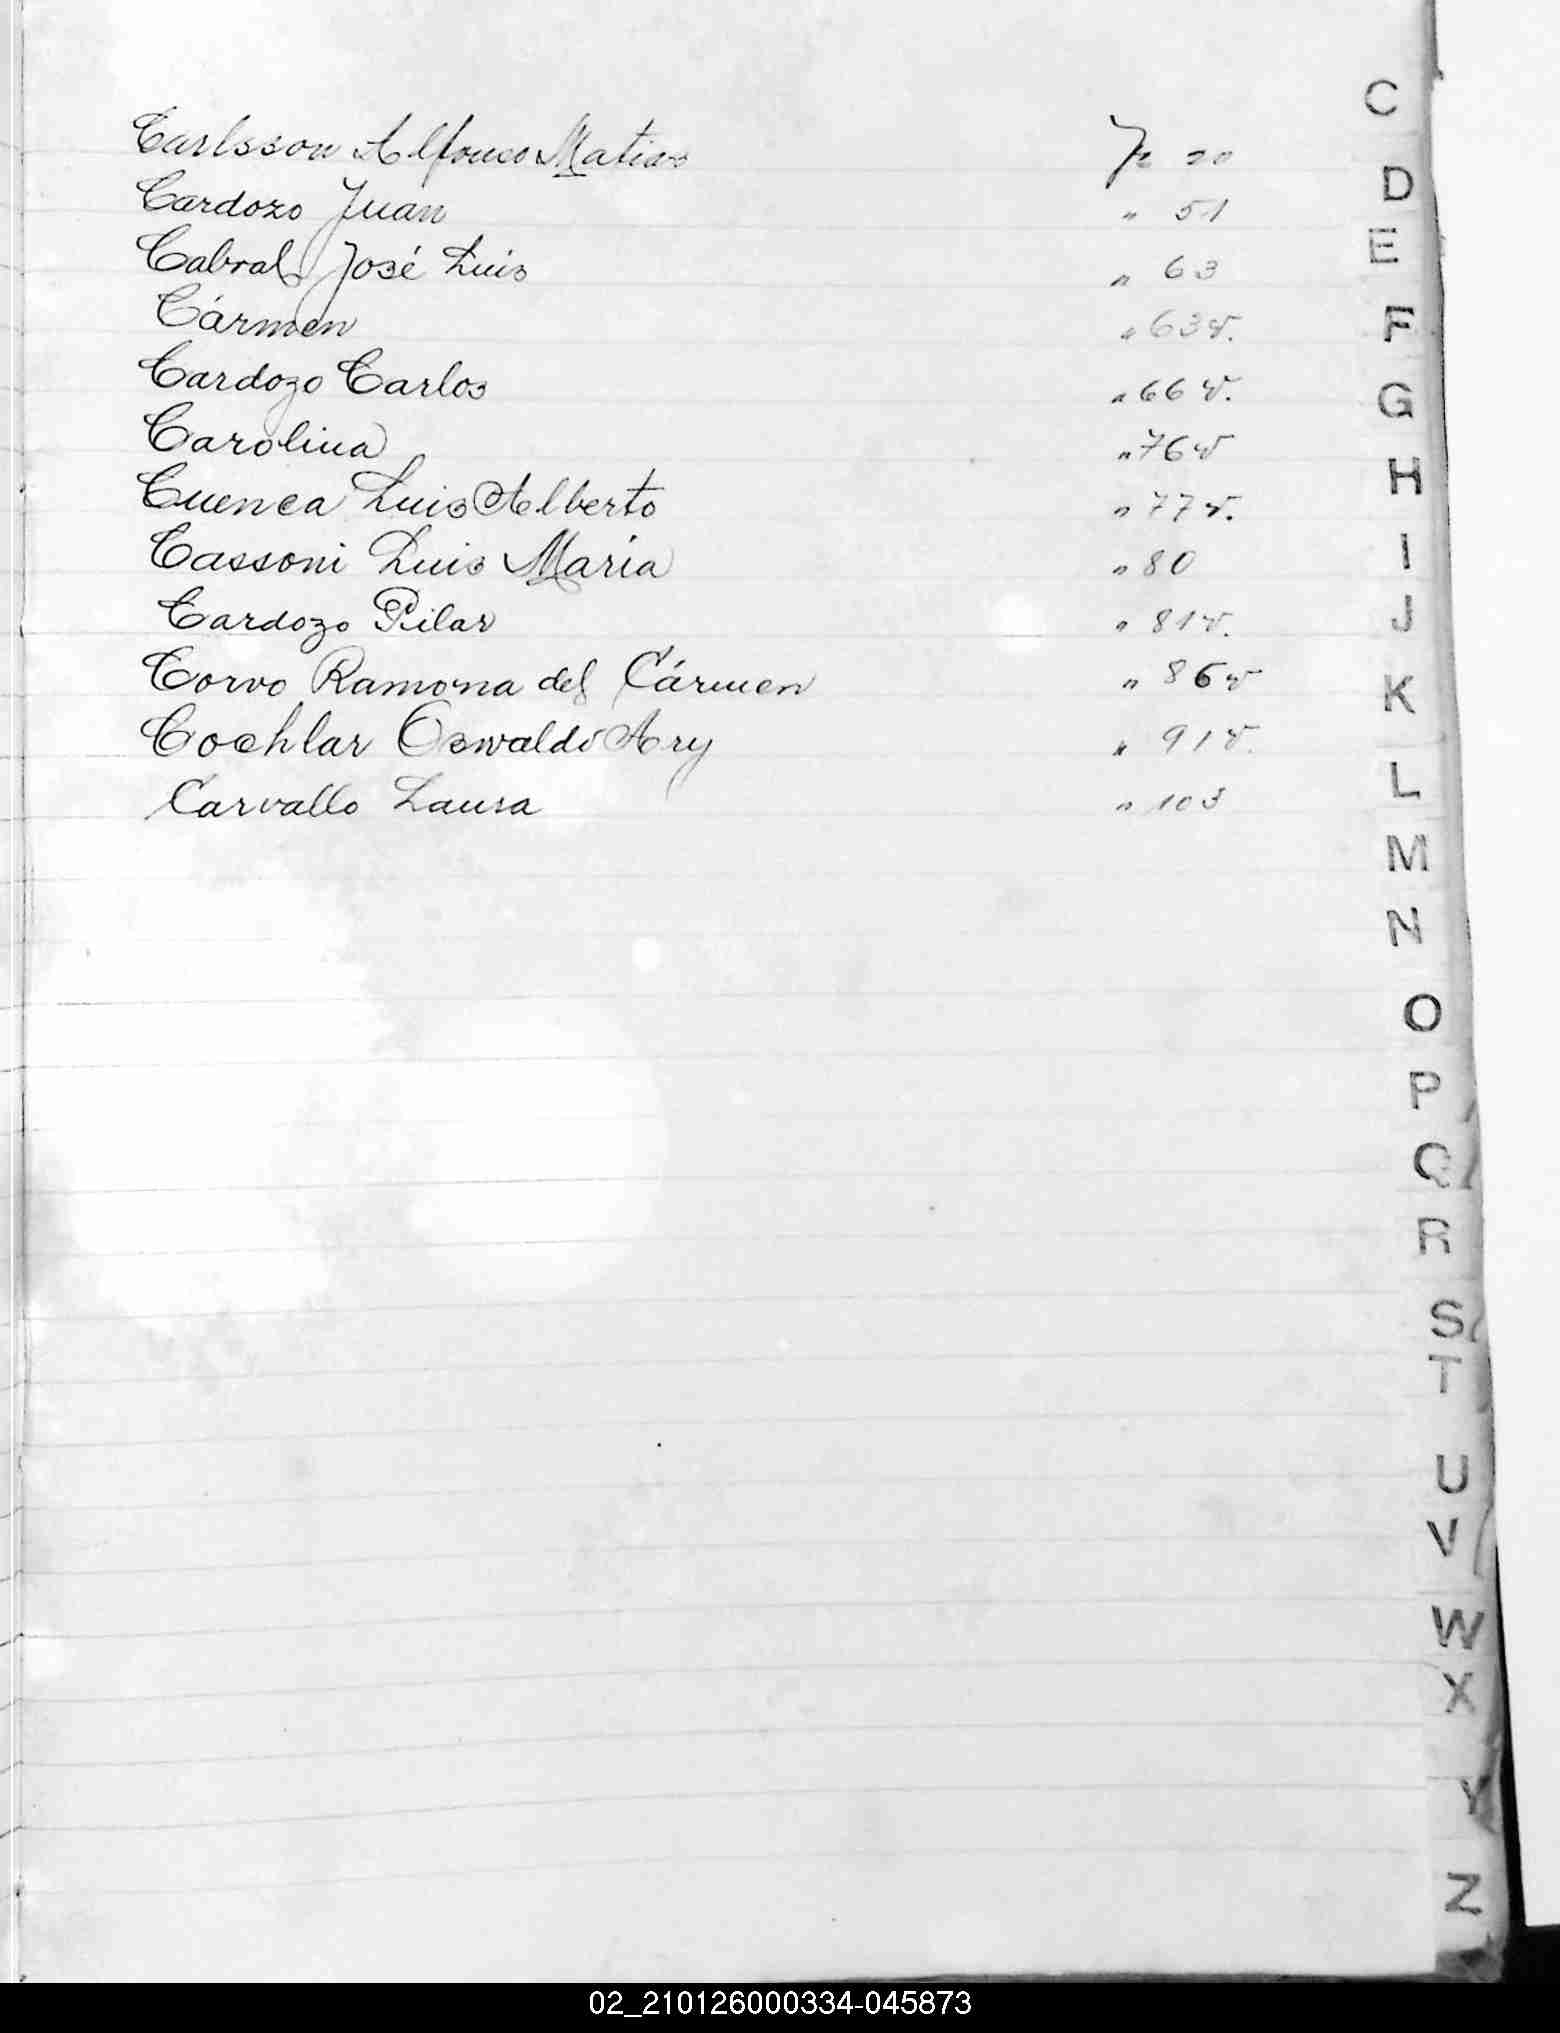 C
Carlsson Alfonso Matias Fo 20
Cardozo Juan " 51
D
Cabral José Luis " 63
E
Cármen " 63v.
F
Cardozo Carlos " 66v.
G
Carolina " 76v
H
Cuenca Luis Alberto " 77v.
Cassoni Luis María " 80
I
Cardozo Pilar " 81v.
J
Corvo Ramona del Cármen " 86v
K
Cochlar Oswaldo Ary " 91v.
Carvallo Laura " 103
L
M
N
O
P
Q
R
S
T
U
V
W
X
Y
Z
02_210126000334-045873